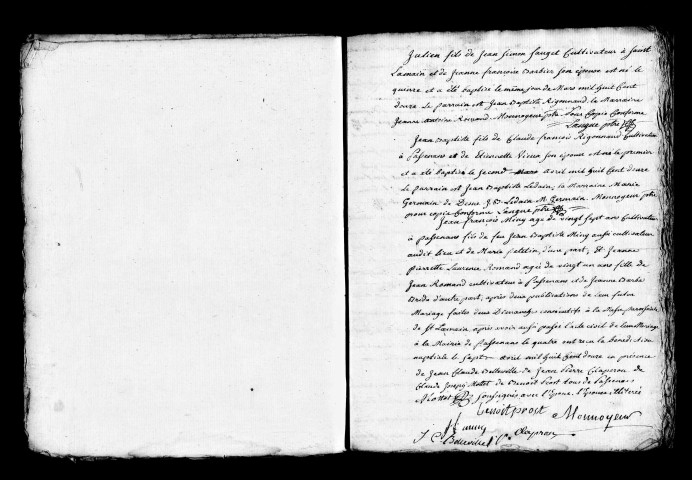 Julien fils de Jean Simon Sauget Cultivateur à Saint
Lamain et de Jeanne françoise Barbier son épouse est né le
quinze et a été baptisé le même jour de Mars mil huit Cent
douze Le parrain est Jean Baptiste Rigonnaud, la Marraine
Jeanne Antoine Romand. Monnoyeur ptre pour Copie Conforme
Lanque ptre
Jean Baptiste fils de Claude françois Rigonnaud Cultivateur
à Passenans et de Etiennette Vieux son épouse est né le premier
et a été baptisé le second avril mil huit Cent douze
Le parrain est Jean Baptiste Ledain, la Marraine Maria
Germain de Disne J. B. Ledain M. Germain. Monnoyeur ptre
pour copie Conforme Lanque ptre
Jean françois Miny agé de vingt sept ans Cultivateur
à passenans fils de feu Jean Baptiste Miny aussi cultivateur
audit lieu et de Marie petetin, d'une part; Et Jeanne
Pierrette Laurence Romand agée de vingt un ans fille de
Jean Romand cultivateur à Passenans et de Jeanne Barbe
Bride d'autre part, après deux publications de leur futur
Mariage faites deux Dimanches consécutifs à la Messe paroissiale
de St Lamain, après avoir aussi passé l'acte civil de leur Mariage
à la Mairie de Passenans le quatre ont reçu la bénédiction
nuptiale le sept avril mil huit Cent douze en présence
de Jean Claude Belleville de Jean Pierre Chapron de
Claude Joseph Mottet de Benoit Prost tous de Passenans
soussignés avec l'Epoux. l'Epouse illiterée
benoit prost Monnoyeur
J C Belleville P. Chapron